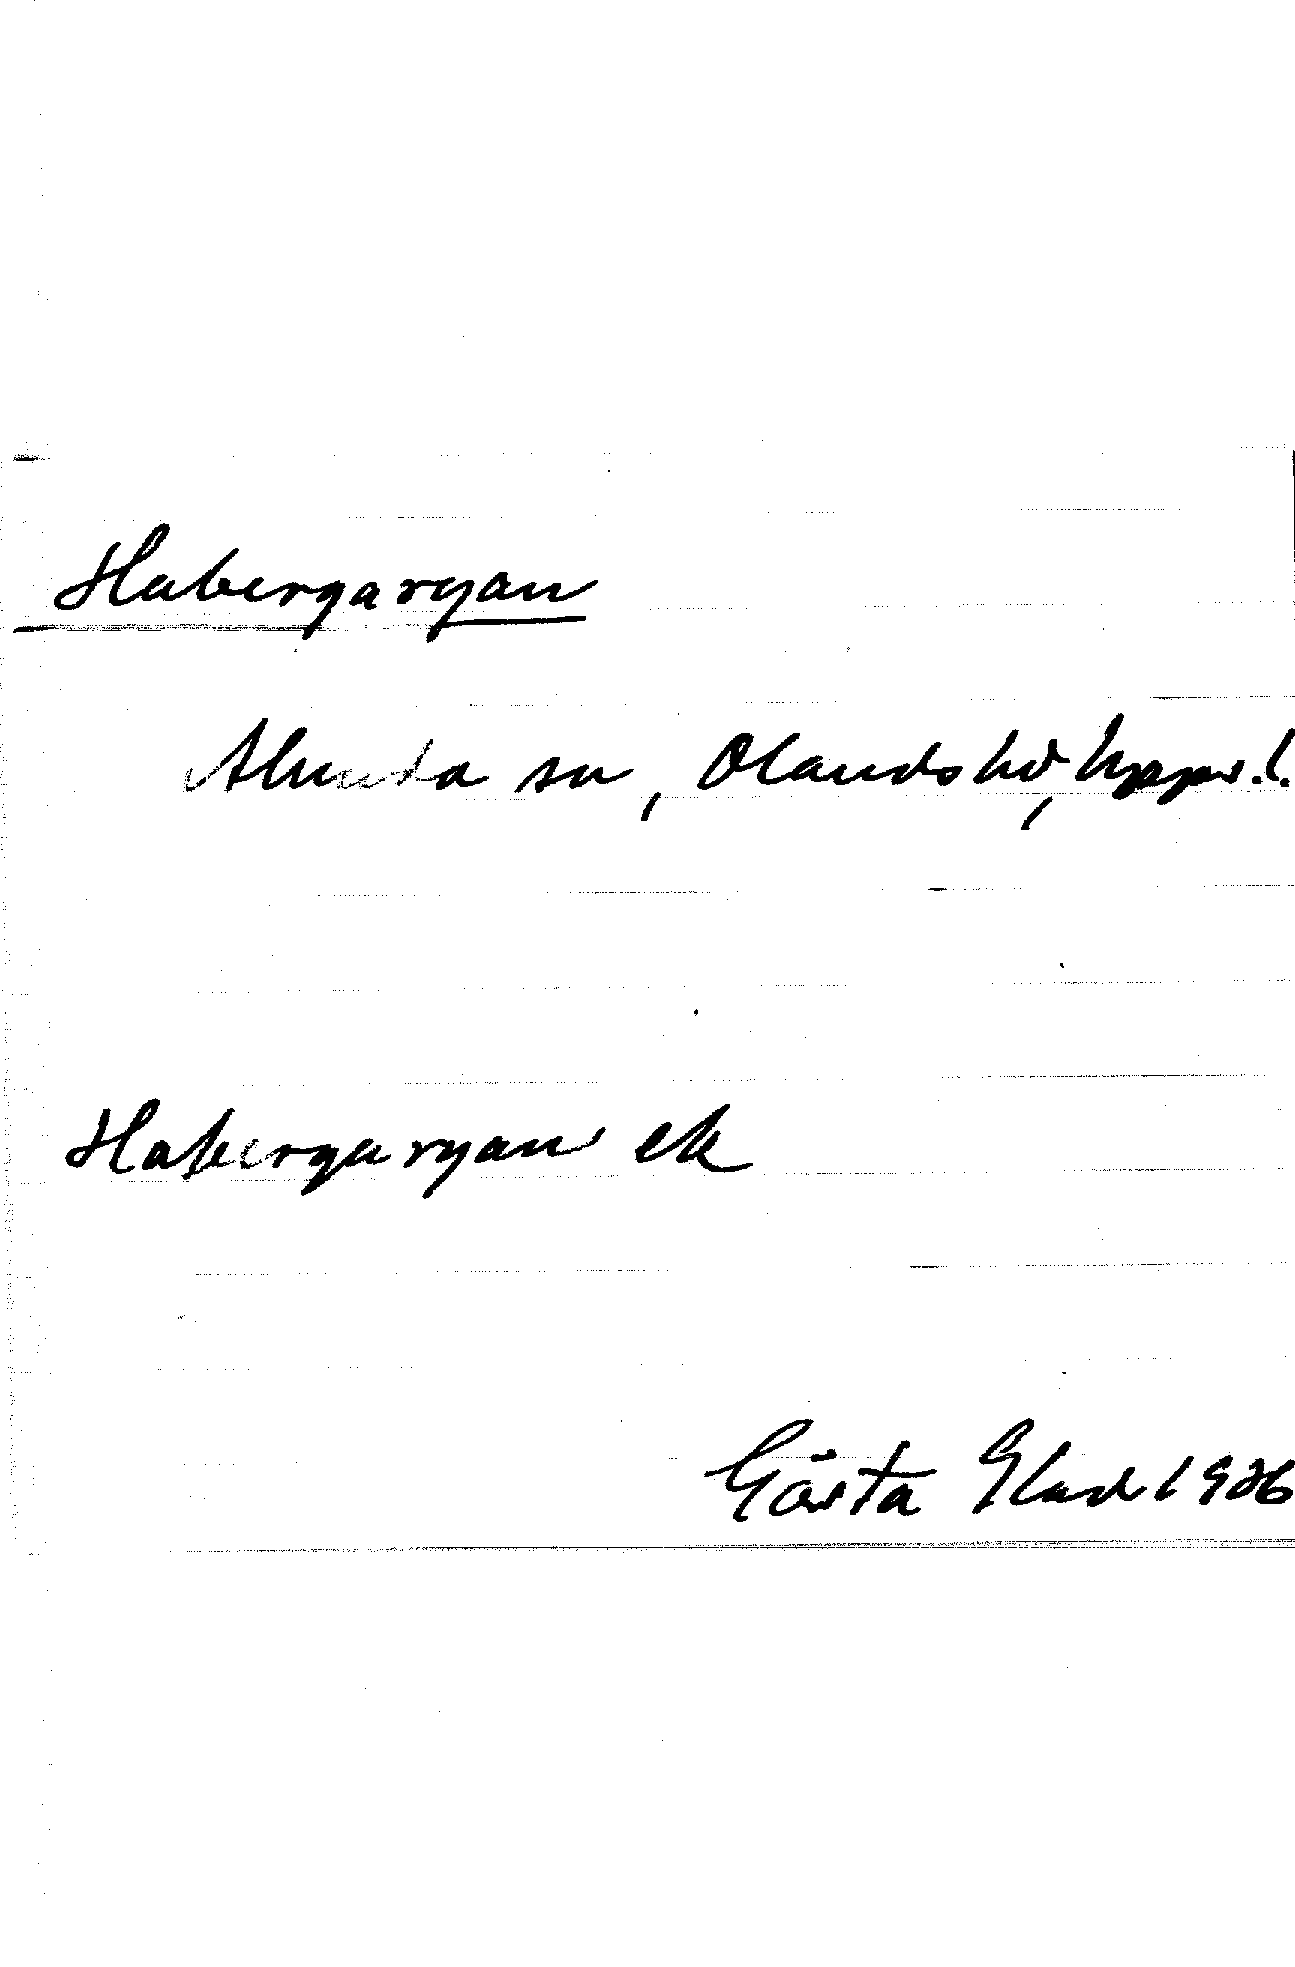 Habergaryan
Alunda sn, Olands hd, Upps. l.
Habergaryan ek
Gösta Elad 1926